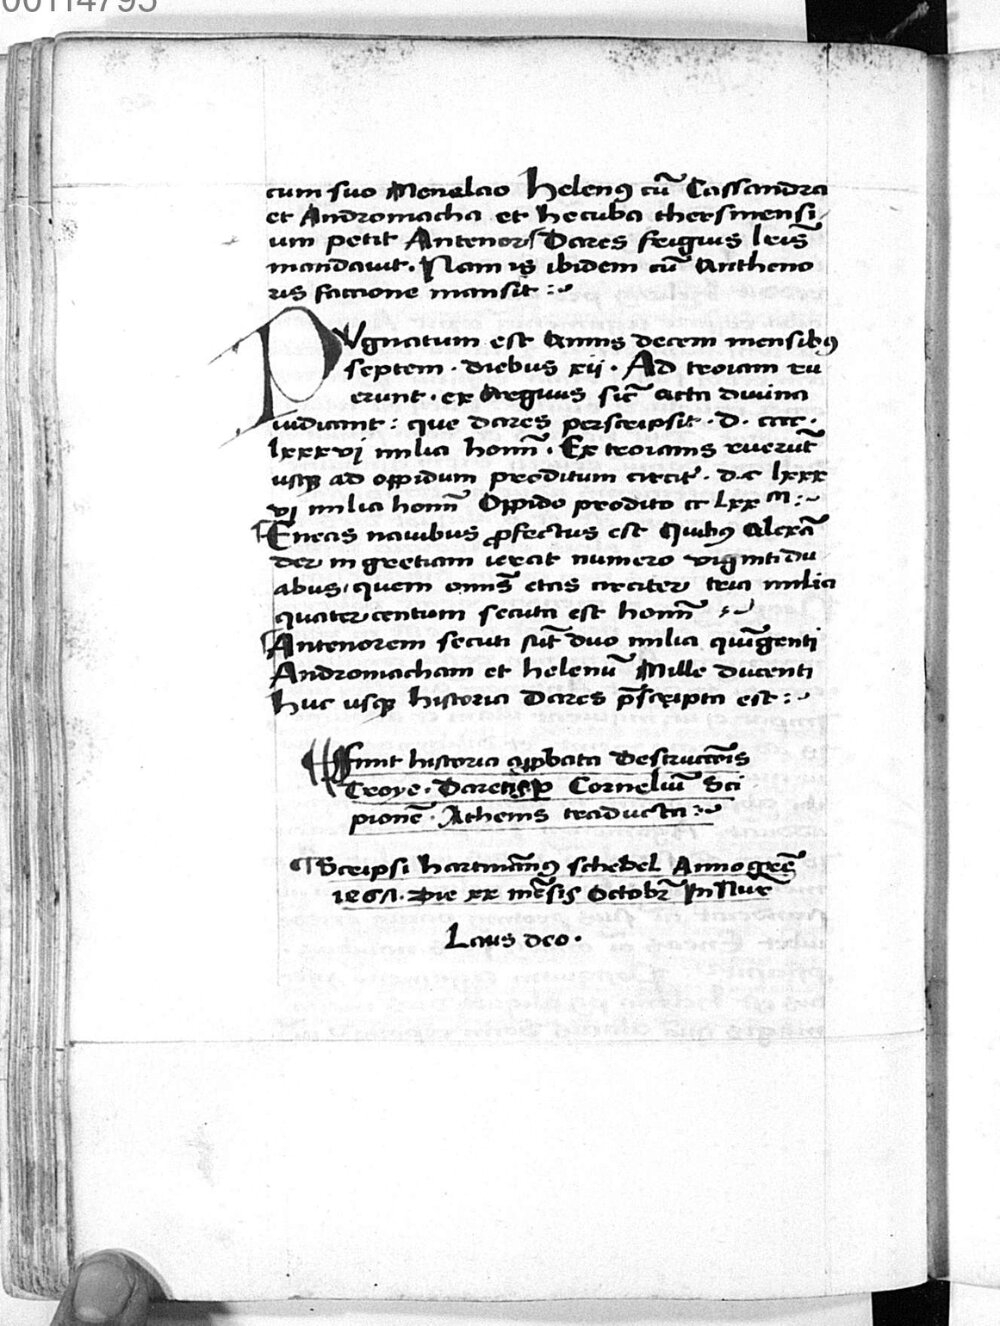 00114795
cum suo Menalao Helenꝰ cū Cassandra
et Andromacha et hecuba thersinensi
um petit Antenorꝭ Dares frigius
mandauit. Nam is ibidem cū Antheno
ris faccione mansit :~
PVgnatum est Annis decem mensibꝰ
septem . diebus xii . Ad troiam ru
erunt . ex Argiuis sic̄ acta diurna
iudicant : que dares perscripsit . D. ccc .
lxxxvj milia homī . Ex troianis ruerūt
usqꝫ ad oppidum proditum circit᷑ . d.c lxxx
vj milia homī Oppido prodito cc Lxx m :~
Eneas nauibus ꝓfectus est Quibꝰ Alexā
der in gretiam ierat numero viginti du
abus, quem omīs etas circiter tria milia
quater centum secuta est homī ;~
Antenorem secuti sūt duo milia quīgenti
Andromacham et helenū Mille ducenti
huc usqꝫ historia Dares p̄scripta est :~
Finit historia destruccōis
Troye . Daretis ꝑ Corneliū Sci
pionē . Athenis traducta :~
Scripsi hartmānꝰ schedel Anno
1461 . Die xx mēsis Octobr̄ In Nur̄
Laus deo .